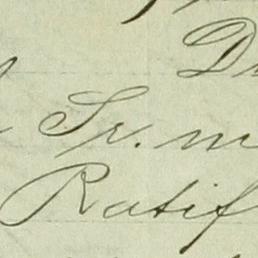 D
Sr. m
Ratif